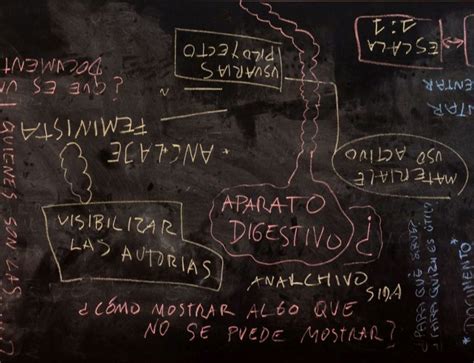 ESCALA
1:1
USUARIAS
¿QUE ES UN
DOCUMENT
* ANCLAJE
FEMINISTA
MATERIALE
USO ACTIVO
QUIENES SON LAS
VISIBILIZAR
LAS AUTORIAS
APARATO
DIGESTIVO
?
ANALCHIVO
SIDA
¿CÓMO MOSTRAR ALGO QUE
NO SE PUEDE MOSTRAR?
¿PARA QUÉ SERVER
¿PARA QUIEN ES ÚTIL?